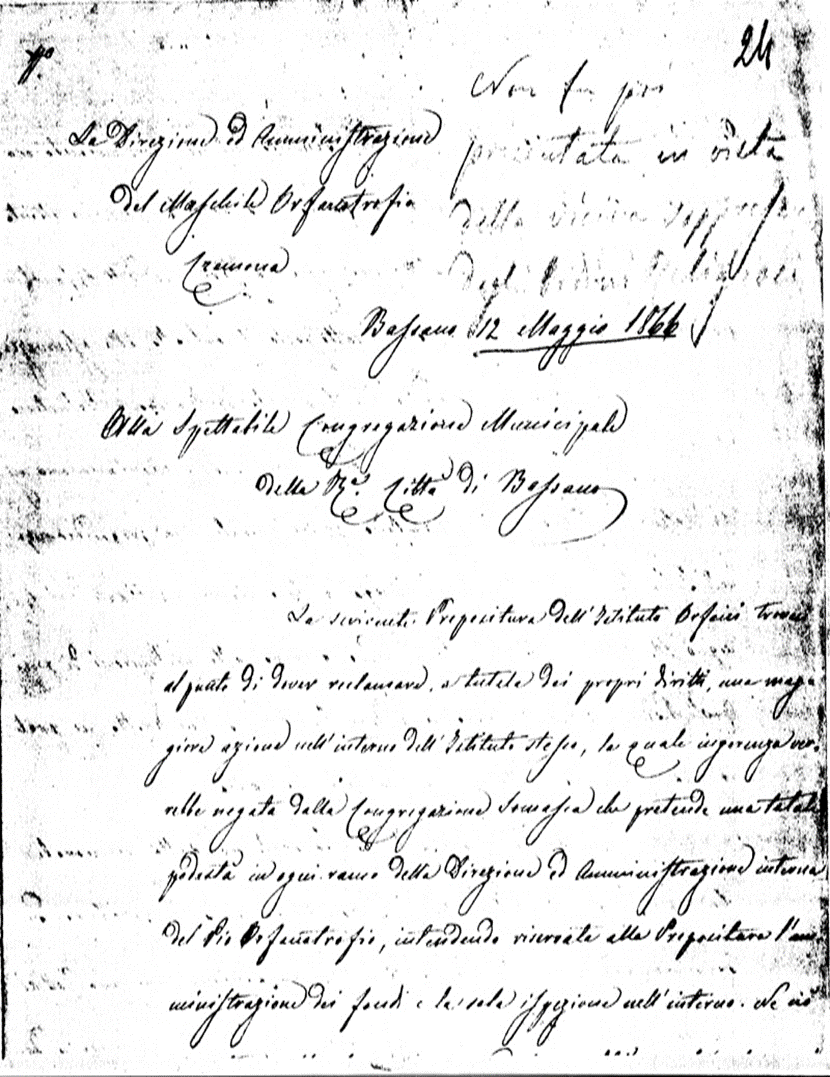 24
Non fu più
La Direzione ed Amministrazione
presentata in vista
del Maschile Orfanotrofio
della
Cremona
degli Ordini Religiosi
Bassano 12 Maggio 1866
Alla Spettabile Congregazione Municipale
della Ra. Città di Bassano
La scrivente Prepositura dell'Istituto Orfani trovasi
al punto di dover reclamare, a tutela dei propri diritti, una mag-
giore azione nell'interno dell'Istituto stesso, la quale ingerenza ver-
rebbe negata dalla Congregazione Somasca che pretende una totale
podestà in ogni ramo della Direzione ed Amministrazione interna
del Pio Orfanotrofio, intendendo riservate alla Prepositura l'am-
ministrazione dei fondi e la sola ispezione nell'interno. Se ciò